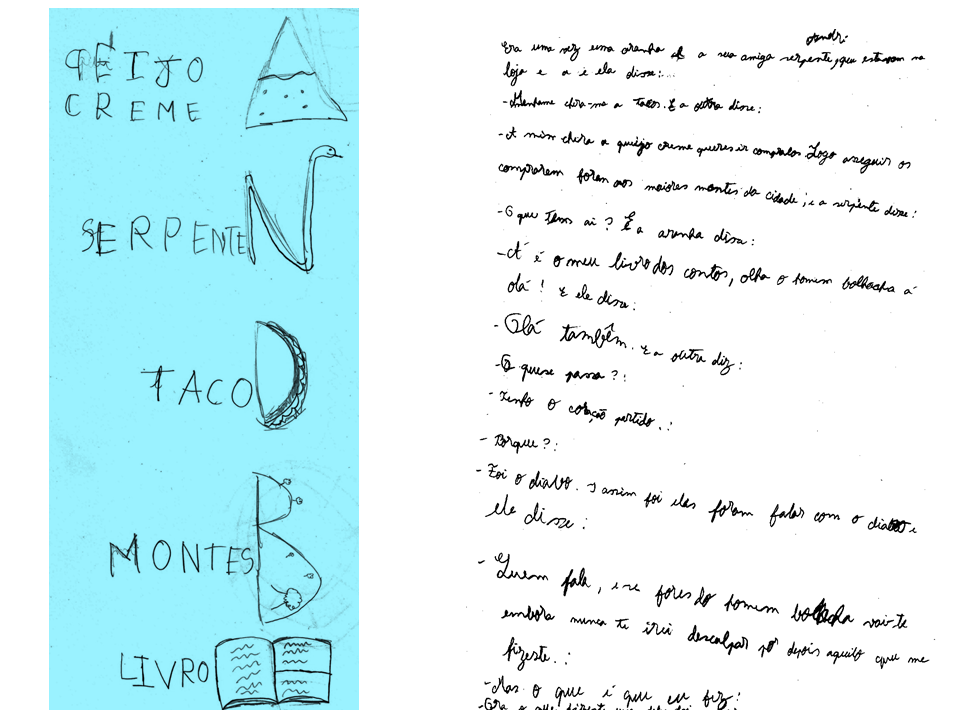 QEIJO
CREME
SERPENTE
TACO
MONTES
LIVRO
Era uma vez uma aranha e a sua amiga serpente, que estavam na
loja e a é ela disse:...
-Menhame chira-ma a Tacos. E a outra disse:
-A mim chira a queijo creme queres ir compralos. Logo asseguir os
comprarem foram aos maiores montes da cidade, e a serpente disse:
-O que tens ai? E a aranha dissa:
-A é o meu livro dos contos, olha o homem bolhacha á
olá! E ele disse:
-Olá também. E a outra diz:
-O quese passa?:
-Tenho o coração partido.:
-Porque?:
-Foi o diabo. I assim foi elas foram falar com o diabo e
ele disse:
-Quem fala, e se fores do homem bolhacha vai-te
embora nunca te irei desculpar por depois aquilo que me
fizeste.:
-Mas o que é que eu fiz: